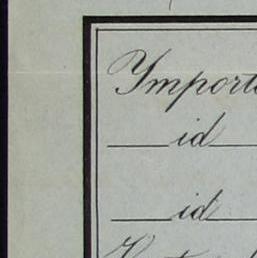 Importe
id
id